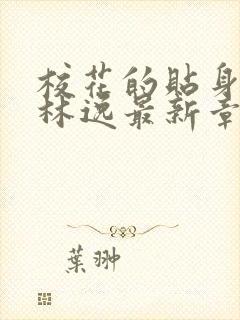 校花的貼身
林逸最新章
葉翀